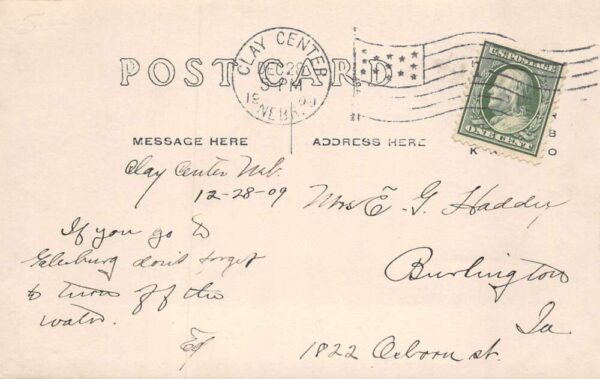 POST CARD
CLAY CENTER
DEC 28
5 PM
1909
NEBR.
U.S. POSTAGE
ONE CENT
MESSAGE HERE
ADDRESS HERE
Clay Center Neb.
12-28-09
If you go to
Galesburg don't forget
to turn off the
water.
Ed
Mrs E. G.
Burlington
Ia
1822 Osborn st.